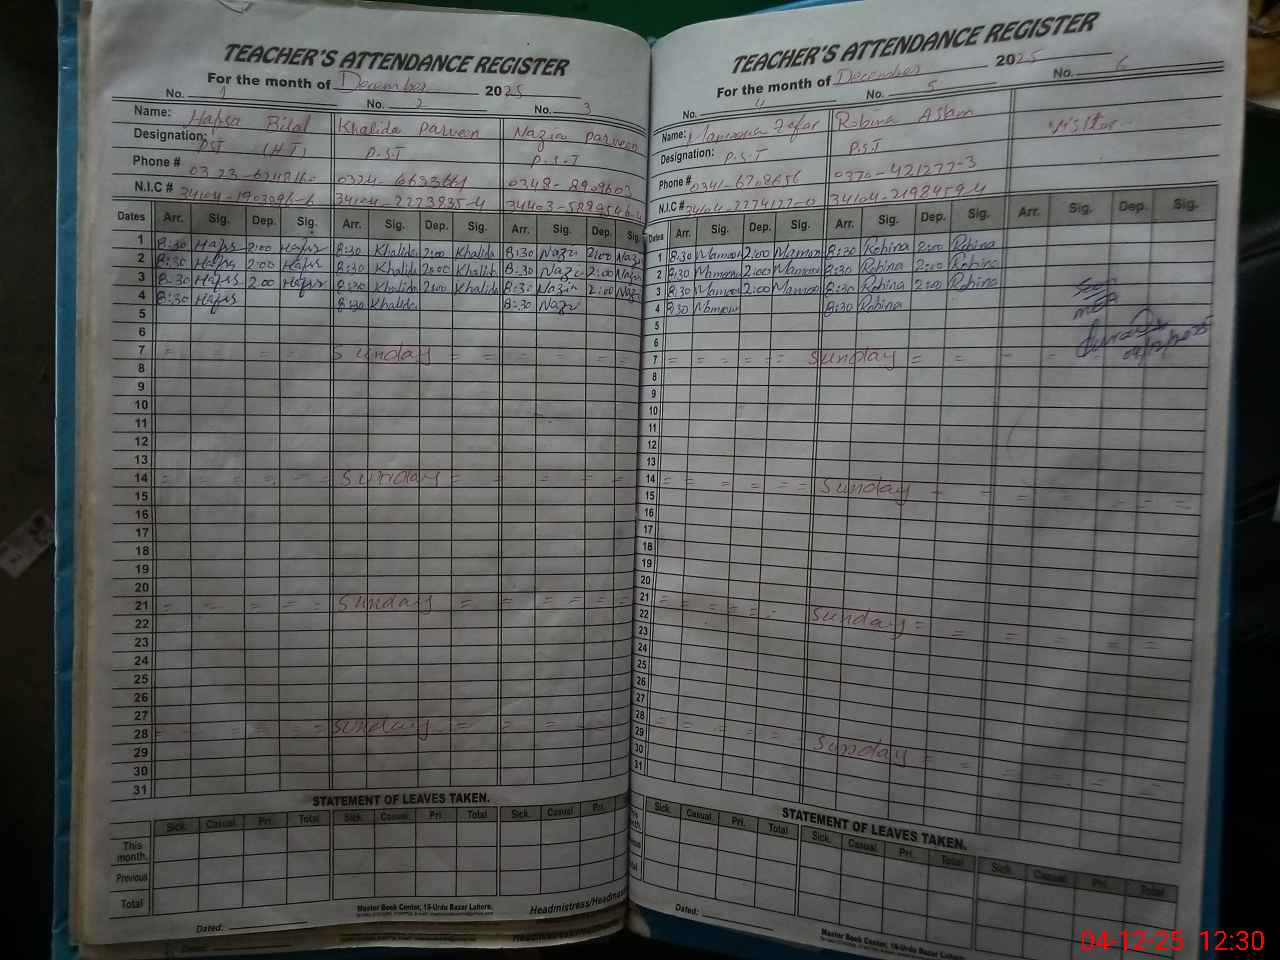 TEACHER'S ATTENDANCE REGISTER
For the month of December 2025
No. 1 No. 2 No. 3
Name: Hafsa Bilal Khalida Parveen Nazia Parveen
Designation: PST (H.T) P.S.T P.S.T
Phone #
N.I.C #
Dates Arr. Sig. Dep. Sig. Arr. Sig. Dep. Sig. Arr. Sig. Dep. Sig.
1 8:30 Hafsr 2:00 Hafsr 8:30 Khalida 2:00 Khalida 8:30 Nazi 2:00 Nazi
2 8:30 Hafsr 2:00 Hafsr 8:30 Khalida 2:00 Khalida 8:30 Nazi 2:00 Nazi
3 8:30 Hafsr 2:00 Hafsr 8:30 Khalida 2:00 Khalida 8:30 Nazia 2:00 Nazi
4 8:30 Hafsr 8:30 Khalida 8:30 Nazi
5
6
7 = = = Sunday = = = = = =
8
9
10
11
12
13
14 = = = = = Sunday = = = = =
15
16
17
18
19
20
21 = = = = = Sunday = = = = = =
22
23
24
25
26
27
28 = = = = = Sunday = = = = =
29
30
31
STATEMENT OF LEAVES TAKEN.
Sick. Casual Pri. Total Sick. Casual. Pri Total Sick. Casual. Pri.
This month.
Previous
Total
Master Book Center, 18-Urdu Bazar Lahore.
Dated: Headmistress/Headmas
TEACHER'S ATTENDANCE REGISTER
For the month of December 2025
No. 4 No. 5 No. 6
Name: Mamoona Zafar Robina Aslam Visitor
Designation: P.S.T P.S.T
Phone # 0341-6708656 0370-421277-3
N.I.C # 34104-2774127-0 34104-2198459-4
Dates Arr. Sig. Dep. Sig. Arr. Sig. Dep. Sig. Arr. Sig. Dep. Sig.
1 8:30 Mamoon 2:00 Mamoon 8:30 Robina 2:00 Robina
2 8:30 Mamoon 2:00 Mamoon 8:30 Robina 2:00 Robina
3 8:30 Mamoon 2:00 Mamoon 8:30 Robina 2:00 Robina
4 8:30 Mamoon 8:30 Robina
5
6
7 = = = = = Sunday = = - =
8
9
10
11
12
13
14 = = = = = Sunday = = = = = =
15
16
17
18
19
20
21 = = = = = Sunday = = = = = =
22
23
24
25
26
27
28 = = = = = Sunday = = = = = =
29
30
31
Seen
04/12/2025
STATEMENT OF LEAVES TAKEN.
Sick. Casual Pri. Total Sick. Casual. Pri. Total Sick. Casual. Pri. Total
Dated:
Master Book Center, 18-Urdu Bazar Lahore.
04-12-25 12:30